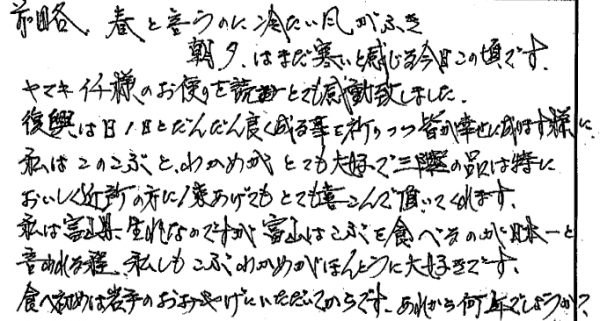 前略、春と言うのに冷たい風がふき
朝夕、はまだ寒いと感じる今日この頃です。
ヤマキイチ様のお便りを読みとても感動致しました。
復興は日1日とだんだん良く成る事を祈りつつ皆が幸せに成ります様に、
私はこのこぶと、わかめが とても大好で三陸の品は特に
おいしく近所の方に1束あげてもとても喜こんで頂いてくれます。
私は富山県生れなのですが富山はこぶを食べるのが日本一と
言われる程、私しもこぶわかめがほんとうに大好きです。
食べ初めは岩手のおみやげにいただいてからです。あれから何年でしょうか?